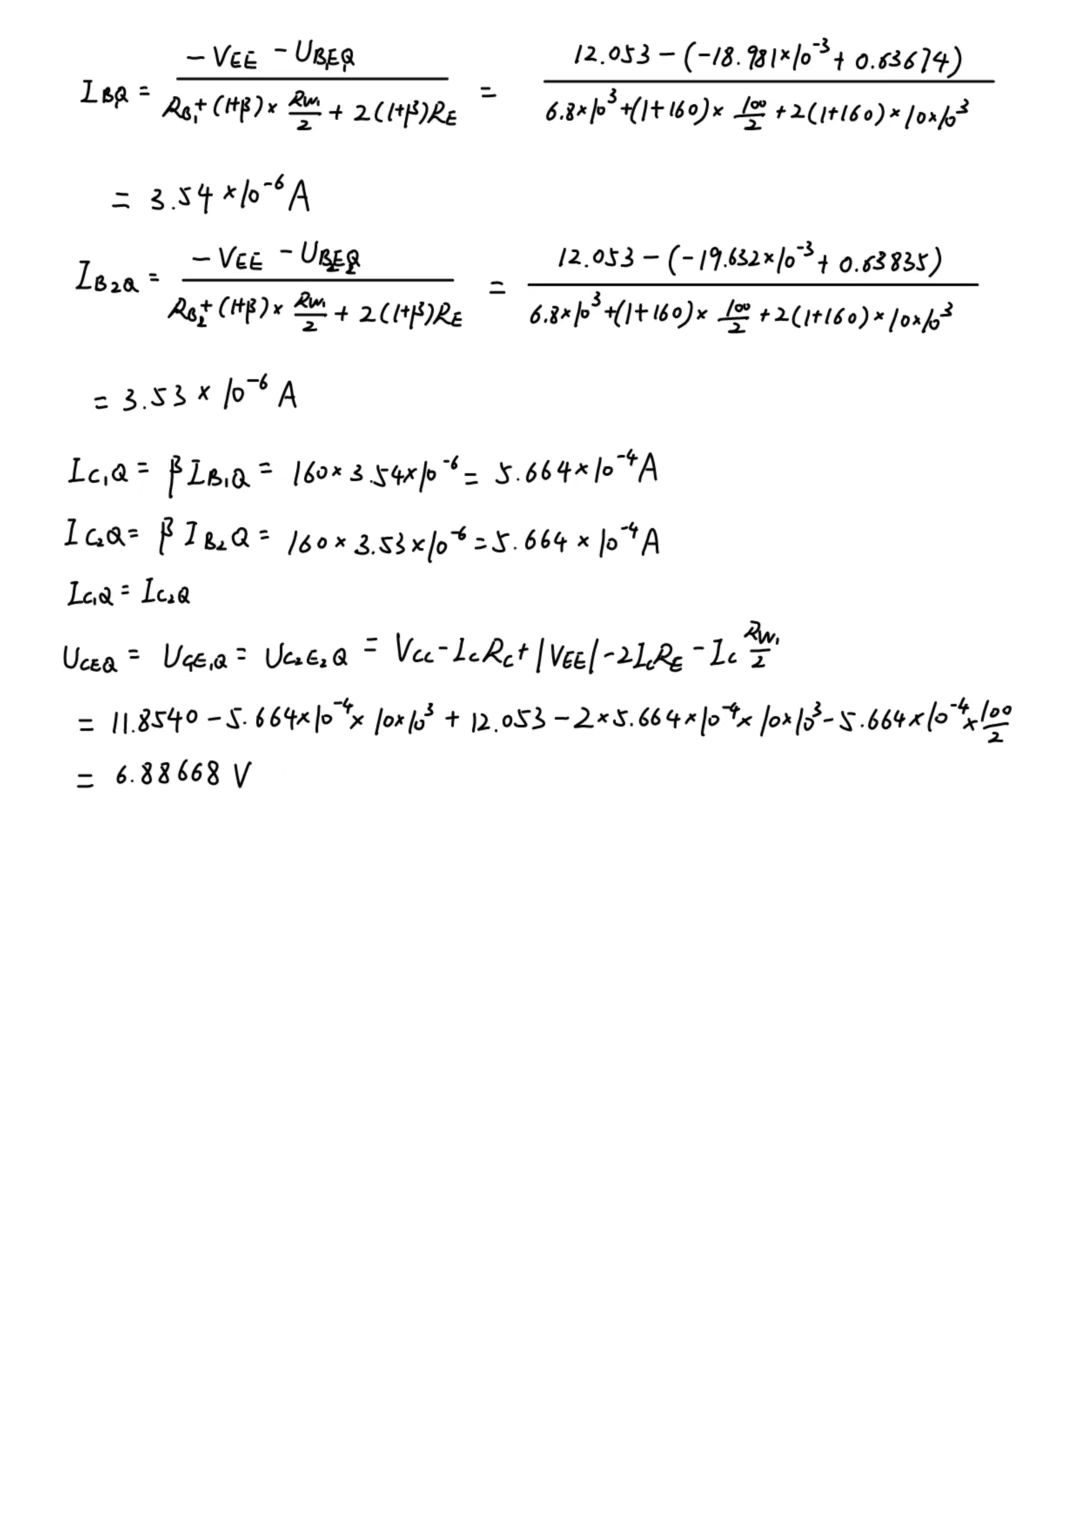 I_{BQ} = \frac{-V_{EE} - U_{BEQ_1}}{R_{B_1} + (1+β) × \frac{R_{W_1}}{2} + 2(1+β)R_E} = \frac{12.053 - (-18.981×10^{-3} + 0.63674)}{6.8×10^3 + (1+160) × \frac{100}{2} + 2(1+160) × 10×10^3}
= 3.54 × 10^{-6} A
I_{B2Q} = \frac{-V_{EE} - U_{B_2E_2Q}}{R_{B_2} + (1+β) × \frac{R_{W_1}}{2} + 2(1+β)R_E} = \frac{12.053 - (-19.632×10^{-3} + 0.63835)}{6.8×10^3 + (1+160) × \frac{100}{2} + 2(1+160) × 10×10^3}
= 3.53 × 10^{-6} A
I_{C_1Q} = βI_{B_1Q} = 160×3.54×10^{-6} = 5.664×10^{-4} A
I_{C_2Q} = β I_{B_2Q} = 160×3.53×10^{-6} = 5.664 × 10^{-4} A
I_{C_1Q} = I_{C_2Q}
U_{CEQ} = U_{C_1E_1Q} = U_{C_2E_2Q} = V_{CC} - I_CR_C + |V_{EE}| - 2I_CR_E - I_C \frac{R_{W_1}}{2}
= 11.8540 - 5.664×10^{-4} × 10×10^3 + 12.053 - 2×5.664×10^{-4} × 10×10^3 - 5.664×10^{-4} × \frac{100}{2}
= 6.88668 V